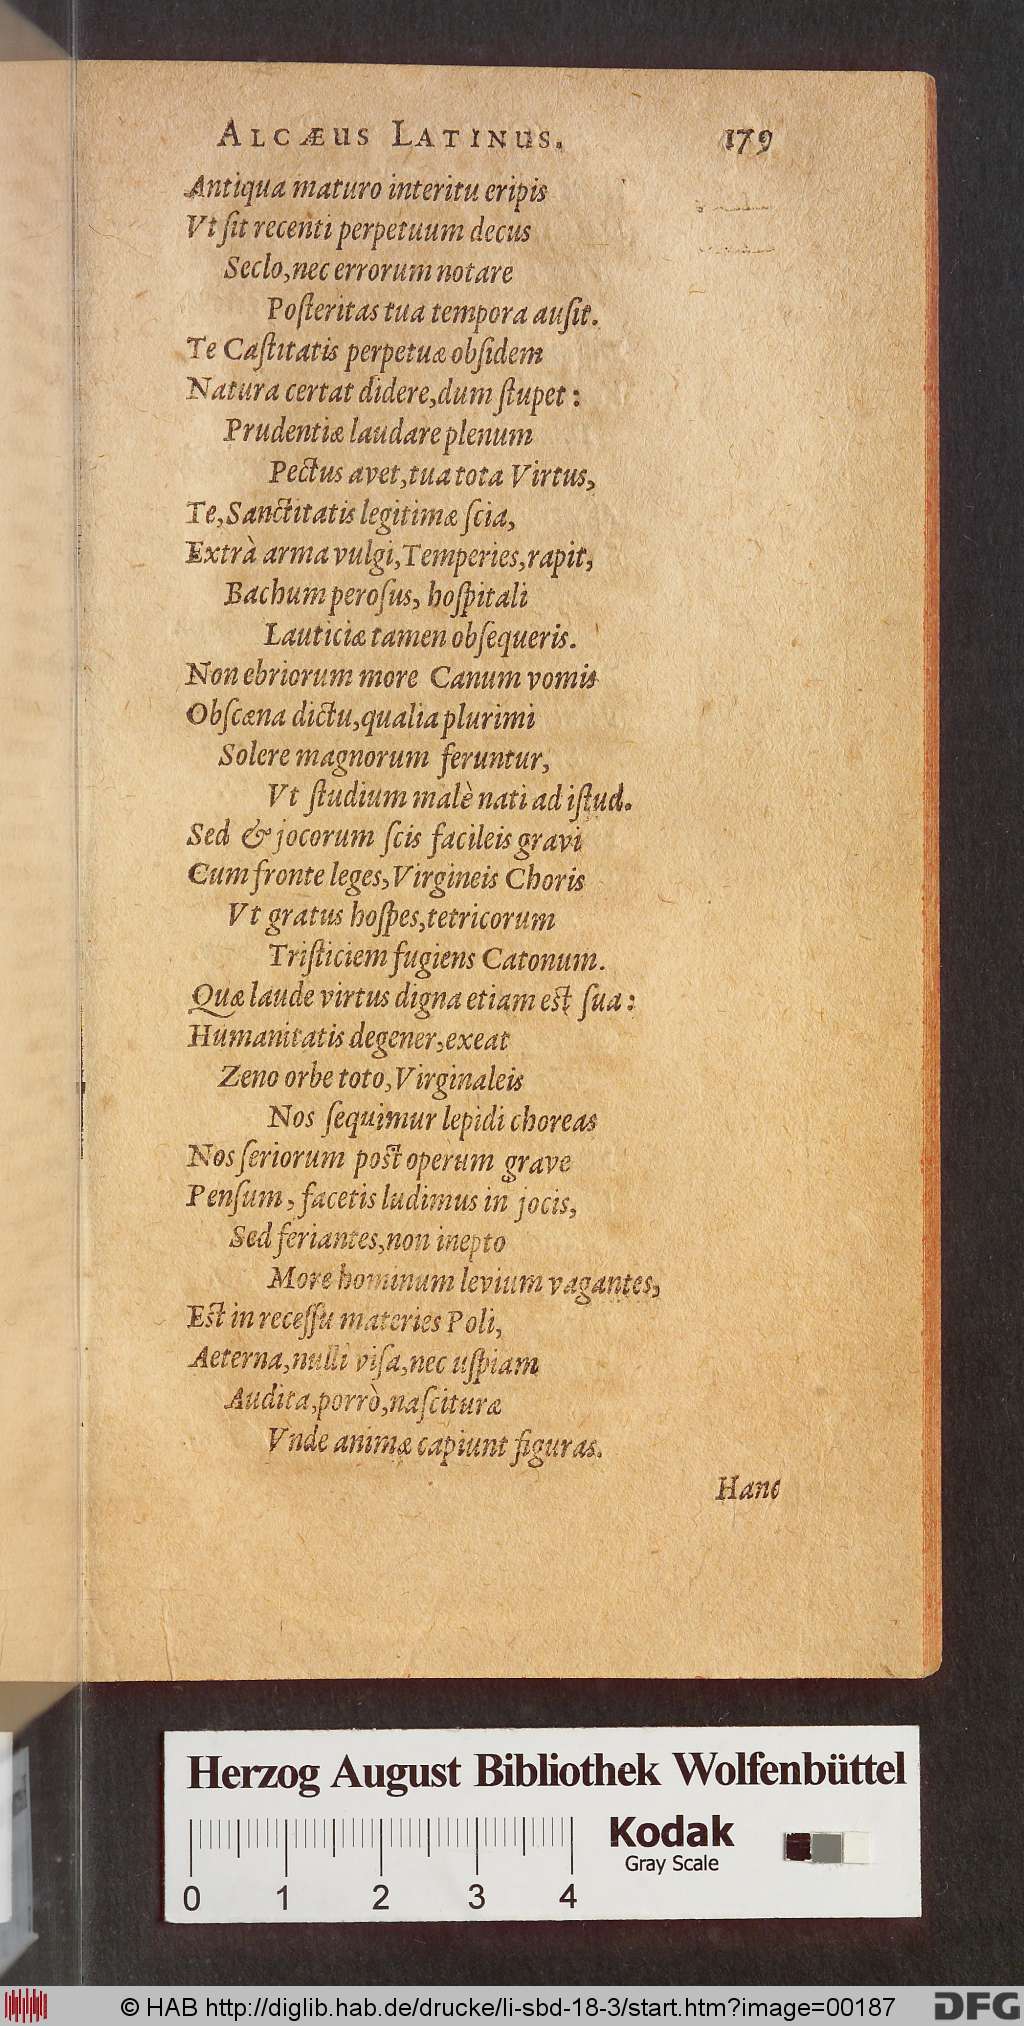 ALCÆUS LATINUS. 179
Antiqua maturo interitu eripis
Vt ſit recenti perpetuum decus
Seclo, nec errorum notare
Poſteritas tua tempora auſit.
Te Caſtitatis perpetuæ obſidem
Natura certat didere, dum ſtupet:
Prudentiæ laudare plenum
Pectus avet, tua tota Virtus,
Te, Sanctitatis legitimæ ſcia,
Extrà arma vulgi, Temperies, rapit,
Bachum peroſus, hoſpitali
Lauticiæ tamen obſequeris.
Non ebriorum more Canum vomis
Obſcæna dictu, qualia plurimi
Solere magnorum feruntur,
Vt ſtudium malè nati ad iſtud.
Sed & jocorum ſcis facileis gravi
Cum fronte leges, Virgineis Choris
Vt gratus hoſpes, tetricorum
Triſticiem fugiens Catonum.
Quæ laude virtus digna etiam eſt ſua:
Humanitatis degener, exeat
Zeno orbe toto, Virginaleis
Nos ſequimur lepidi choreas
Nos ſeriorum poſt operum grave
Penſum, facetis ludimus in jocis,
Sed feriantes, non inepto
More hominum levium vagantes,
Eſt in receſſu materies Poli,
Aeterna, nulli viſa, nec uſpiam
Audita, porrò, naſcituræ
Vnde animæ capiunt figuras.
Hanc
Herzog August Bibliothek Wolfenbüttel
0 1 2 3 4
Kodak
Gray Scale
© HAB http://diglib.hab.de/drucke/li-sbd-18-3/start.htm?image=00187
DFG